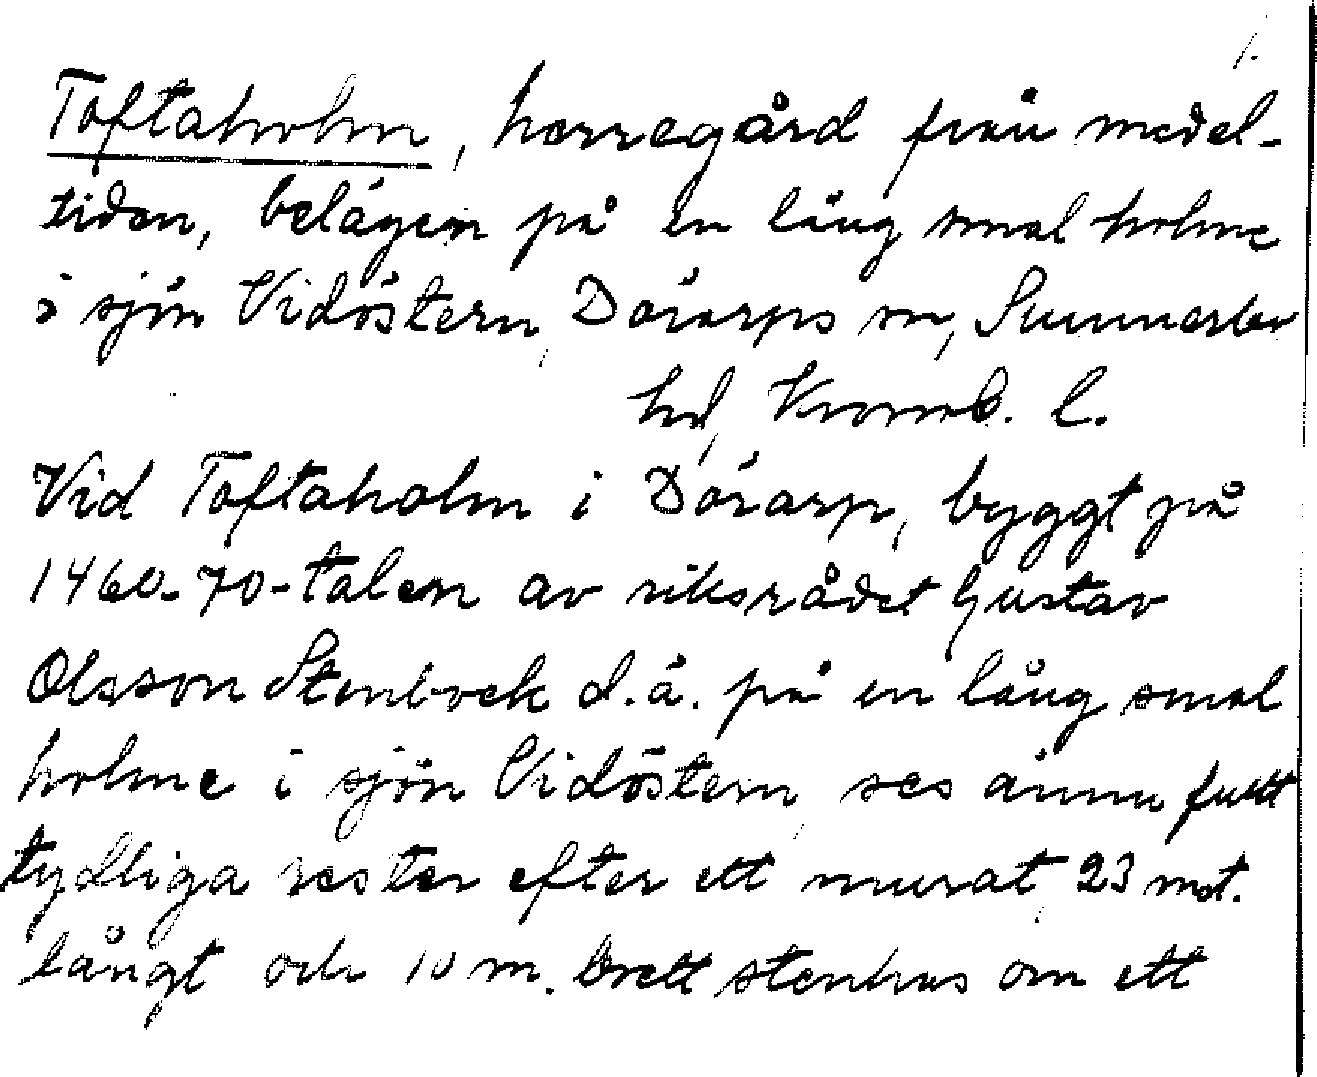 1.
Toftaholm, herregård från medel-
tiden, belägen på en lång smal holme
i sjön Vidöstern, Dörarps sn, Sunnerbo
hd, Kronob. l.
Vid Toftaholm i Dörarp, byggt på
1460-70-talen av riksrådet Gustav
Olsson Stenbock d.ä. på en lång smal
holme i sjön Vidöstern, ses ännu fullt
tydliga rester efter ett murat, 23 mt.
långt och 10 m. brett stenhus om ett